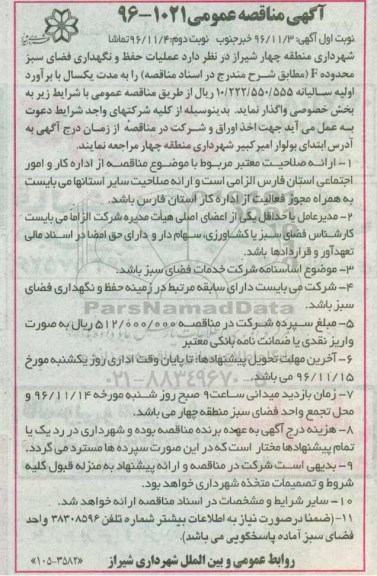 آگهی مناقصه عمومی ۱۰۲۱-۹۶
نوبت اول آگهی: ۹۶/۱۱/۳ خبرجنوب نوبت دوم: ۹۶/۱۱/۴ تماشا
شهرداری منطقه چهار شیراز در نظر دارد عملیات حفظ و نگهداری فضای سبز
محدوده F (مطابق شرح مندرج در اسناد مناقصه) را به مدت یکسال با برآورد
اولیه سالیانه ۱۰/۲۲۲/۵۵۰/۵۵۵ ریال از طریق مناقصه عمومی با شرایط زیر به
بخش خصوصی واگذار نماید. بدینوسیله از کلیه شرکتهای واجد شرایط دعوت
به عمل می آید جهت اخذ اوراق و شرکت در مناقصه از زمان درج آگهی به
آدرس ابتدای بولوار امیر کبیر شهرداری منطقه چهار مراجعه نمایند.
۱- ارائه صلاحیت معتبر مربوط با موضوع مناقصه از اداره کار و امور
اجتماعی استان فارس الزامی است و ارائه صلاحیت سایر استانها می بایست
به همراه مجوز فعالیت از اداره کار استان فارس باشد.
۲- مدیرعامل یا حداقل یکی از اعضای اصلی هیأت مدیره شرکت الزاما می بایست
کارشناس فضای سبز یا کشاورزی، سهام دار و دارای حق امضا در اسناد مالی
تعهدآور و قراردادها باشد.
۳- موضوع اساسنامه شرکت خدمات فضای سبز باشد.
۴- شرکت می بایست دارای سابقه مرتبط در زمینه حفظ و نگهداری فضای
سبز باشد.
ParsNamadData
۵- مبلغ سپرده شرکت در مناقصه ۵۱۲/۰۰۰/۰۰۰ ریال به صورت
واریز نقدی یا ضمانت نامه بانکی معتبر
۶- آخرین مهلت تحویل پیشنهادها: تا پایان وقت اداری روز یکشنبه مورخ
۹۶/۱۱/۱۵ می باشد.
۰۲۱-۸۸۳۴۹۶۷۰
۷- زمان بازدید میدانی ساعت ۹ صبح روز شنبه مورخه ۹۶/۱۱/۱۴ و
محل تجمع واحد فضای سبز منطقه چهار می باشد.
۸- هزینه درج آگهی به عهده برنده مناقصه بوده و شهرداری در رد یک یا
تمام پیشنهادها مختار است که در این صورت سپرده ها مسترد می گردد.
۹- بدیهی است شرکت در مناقصه و ارائه پیشنهاد به منزله قبول کلیه
شروط و تصمیمات متخذه شهرداری خواهد بود.
۱۰- سایر شرایط و مشخصات در اسناد مناقصه ارائه خواهد شد.
۱۱- (ضمنا در صورت نیاز به اطلاعات بیشتر شماره تلفن ۳۸۳۰۸۵۹۶ واحد
فضای سبز آماده پاسخگویی می باشد).
روابط عمومی و بین الملل شهرداری شیراز «۱۰۵-۳۵۸۲»